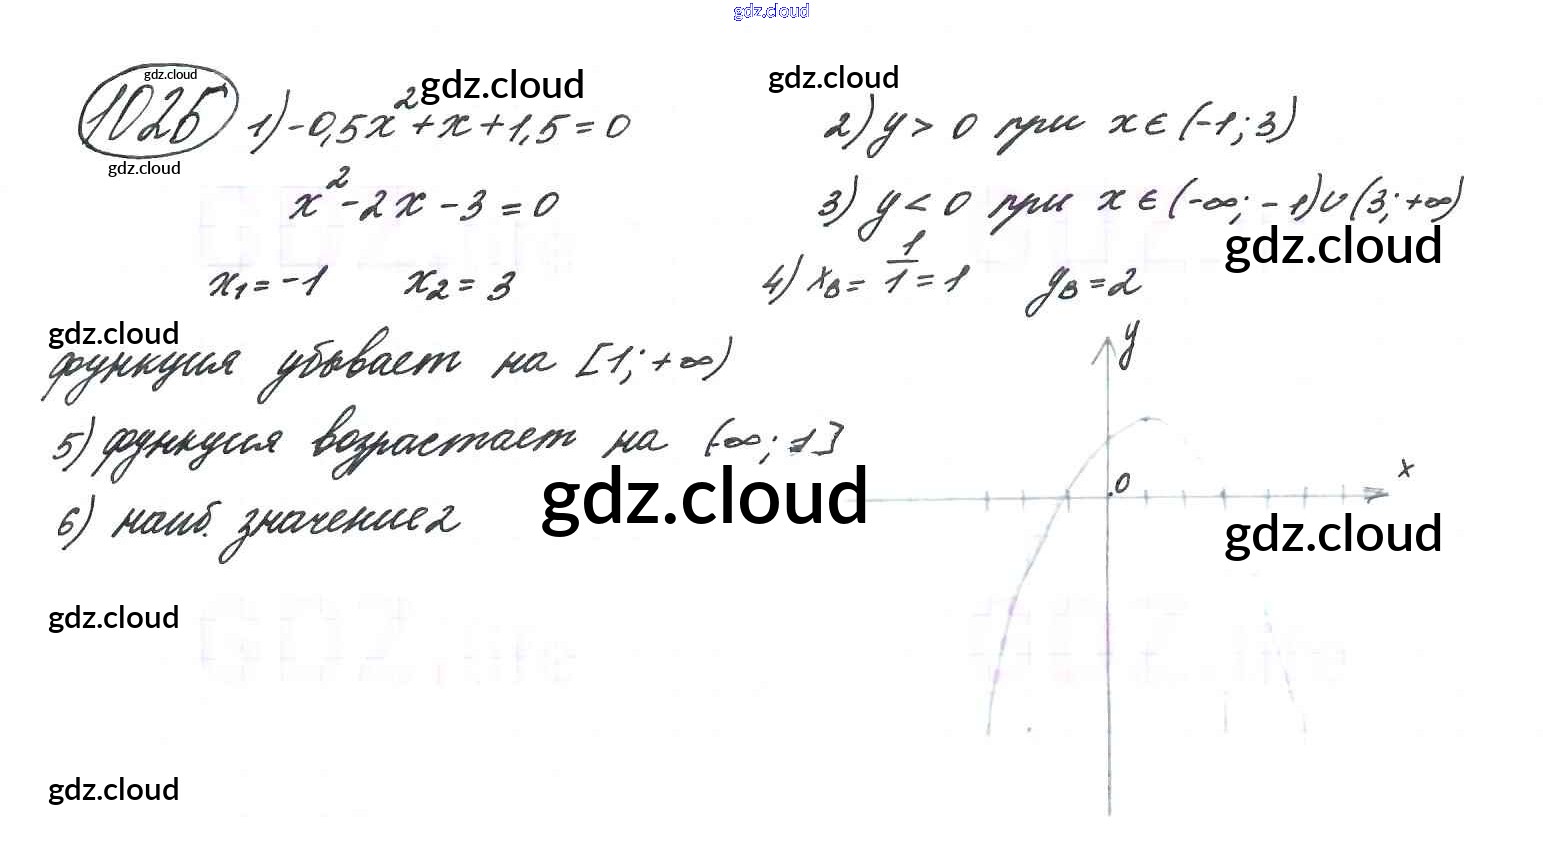 gdz.cloud
1026
gdz.cloud
gdz.cloud
1) -0,5x²+x+1,5=0
gdz.cloud
x²-2x-3=0
x₁=-1 x₂=3
gdz.cloud
функция убывает на [1;+∞)
5) функция возрастает на (-∞;1]
6) наиб. значение 2
gdz.cloud
gdz.cloud
2) y>0 при x∈(-1;3)
gdz.cloud
3) y<0 при x∈(-∞;-1)∪(3;+∞)
gdz.cloud
4) xв=1/1=1 yв=2
y
x
0
gdz.cloud
gdz.cloud
gdz.cloud
GDZ.life
GDZ.life
GDZ.life